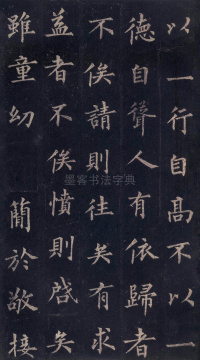 以一行自高不以一
德自聳人有依歸者
不俟請則往矣有求
益者不俟憤則啓矣
雖童幼 蕳於敬接
墨客书法字典